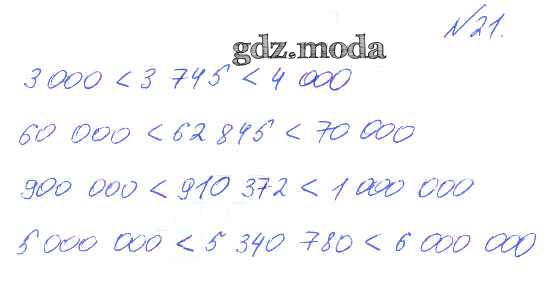 №21.
gdz.moda
3 000 < 3 745 < 4 000
60 000 < 62 845 < 70 000
900 000 < 910 372 < 1 000 000
5 000 000 < 5 340 780 < 6 000 000